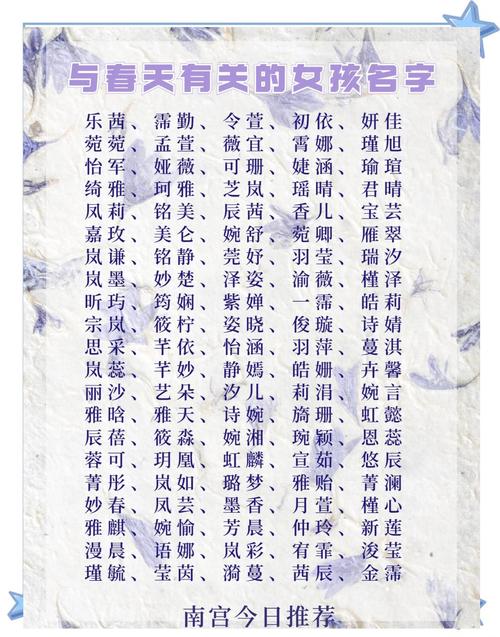 与春天有关的女孩名字
乐茜、霈勤、令萱、初依、妍佳
菀菀、孟萱、薇宜、霄娜、瑾旭
怡军、娅薇、可珊、婕涵、瑜瑄
绮雅、珂雅、芝岚、瑶晴、君晴
凤莉、铭美、辰茜、香儿、宝芸
嘉玫、美仑、婉舒、菀卿、雁翠
岚谦、铭静、莞妤、羽莹、瑞汐
岚墨、妙楚、泽姿、渝薇、槿泽
昕玙、筠娴、紫婵、一霈、皓莉
宗岚、筱柠、姿晓、俊璇、诗婧
思采、芊依、怡涵、羽萍、蔓淇
岚蕊、芊妙、静嫣、皓姗、卉馨
丽沙、艺朵、汐儿、莉涓、婉言
雅晗、雅天、诗婉、旖珊、虹懿
辰蓓、筱淼、婉湘、琬颖、恩蕊
蓉可、玥凰、虹麟、宣茹、悠辰
菁彤、岚如、璐梦、雅贻、菁澜
妙春、凤芸、墨香、月萱、槿心
雅麒、婉愉、芳晨、仲玲、新莲
漫晨、语娜、岚彩、宥霏、浚莹
瑾毓、莹茵、漪蔓、茜辰、金霈
南宫今日推荐